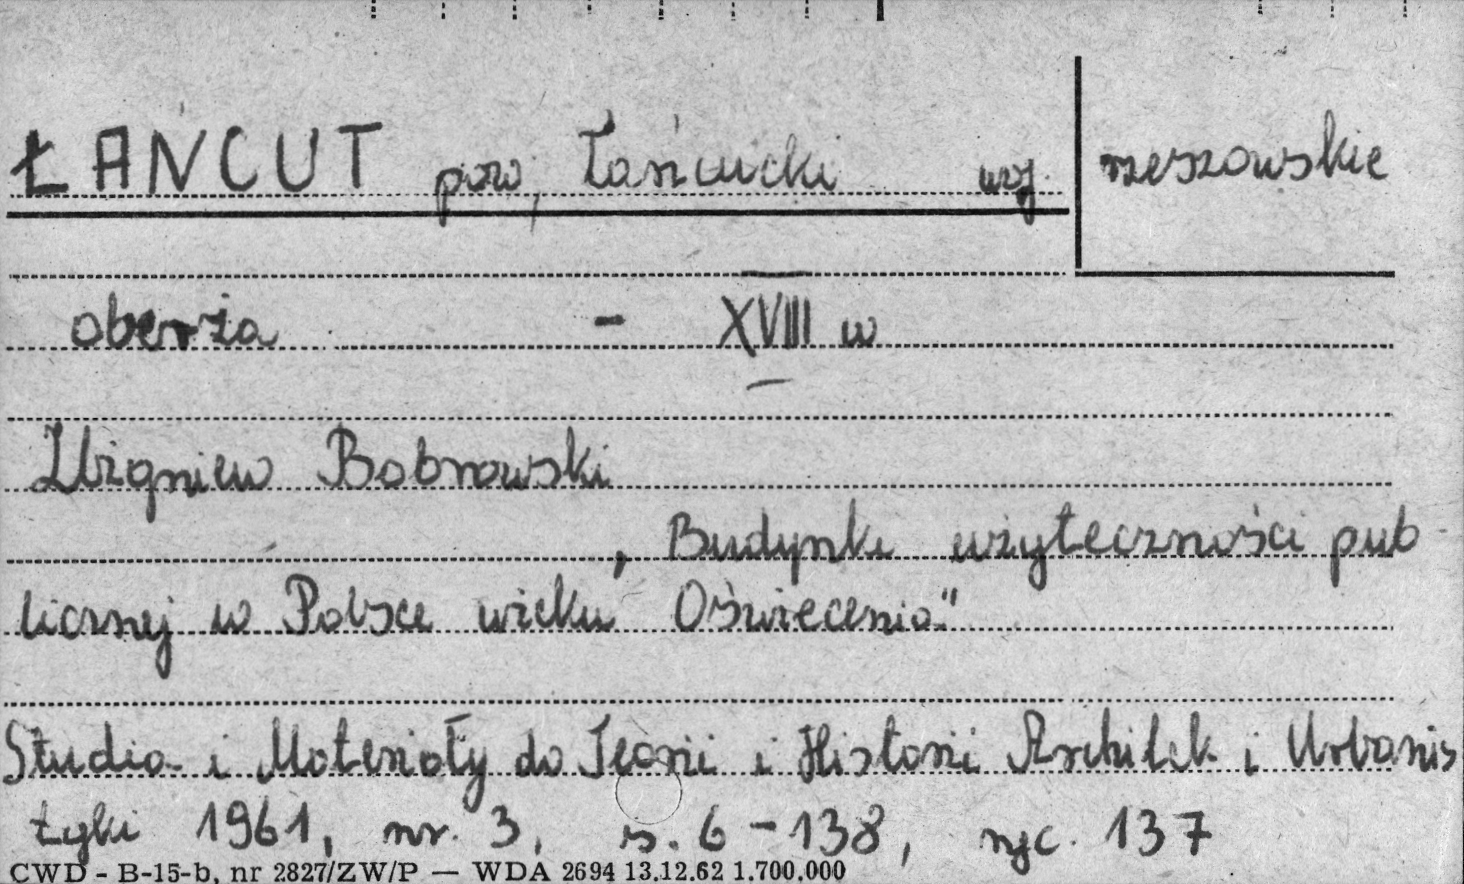 ŁAŃCUT pow. Łańcucki woj. rzeszowskie
oberża - XVIII w
Zbigniew Bobrowski
„Budynki użyteczności pub
licznej w Polsce wieku Oświecenia"
Studia i Materiały do Teorii i Historii Architek i Urbanis
tyki 1961, nr. 3, s. 6-138, ryc. 137
CWD - B-15-b, nr 2827/ZW/P — WDA 2694 13.12.62 1.700.000